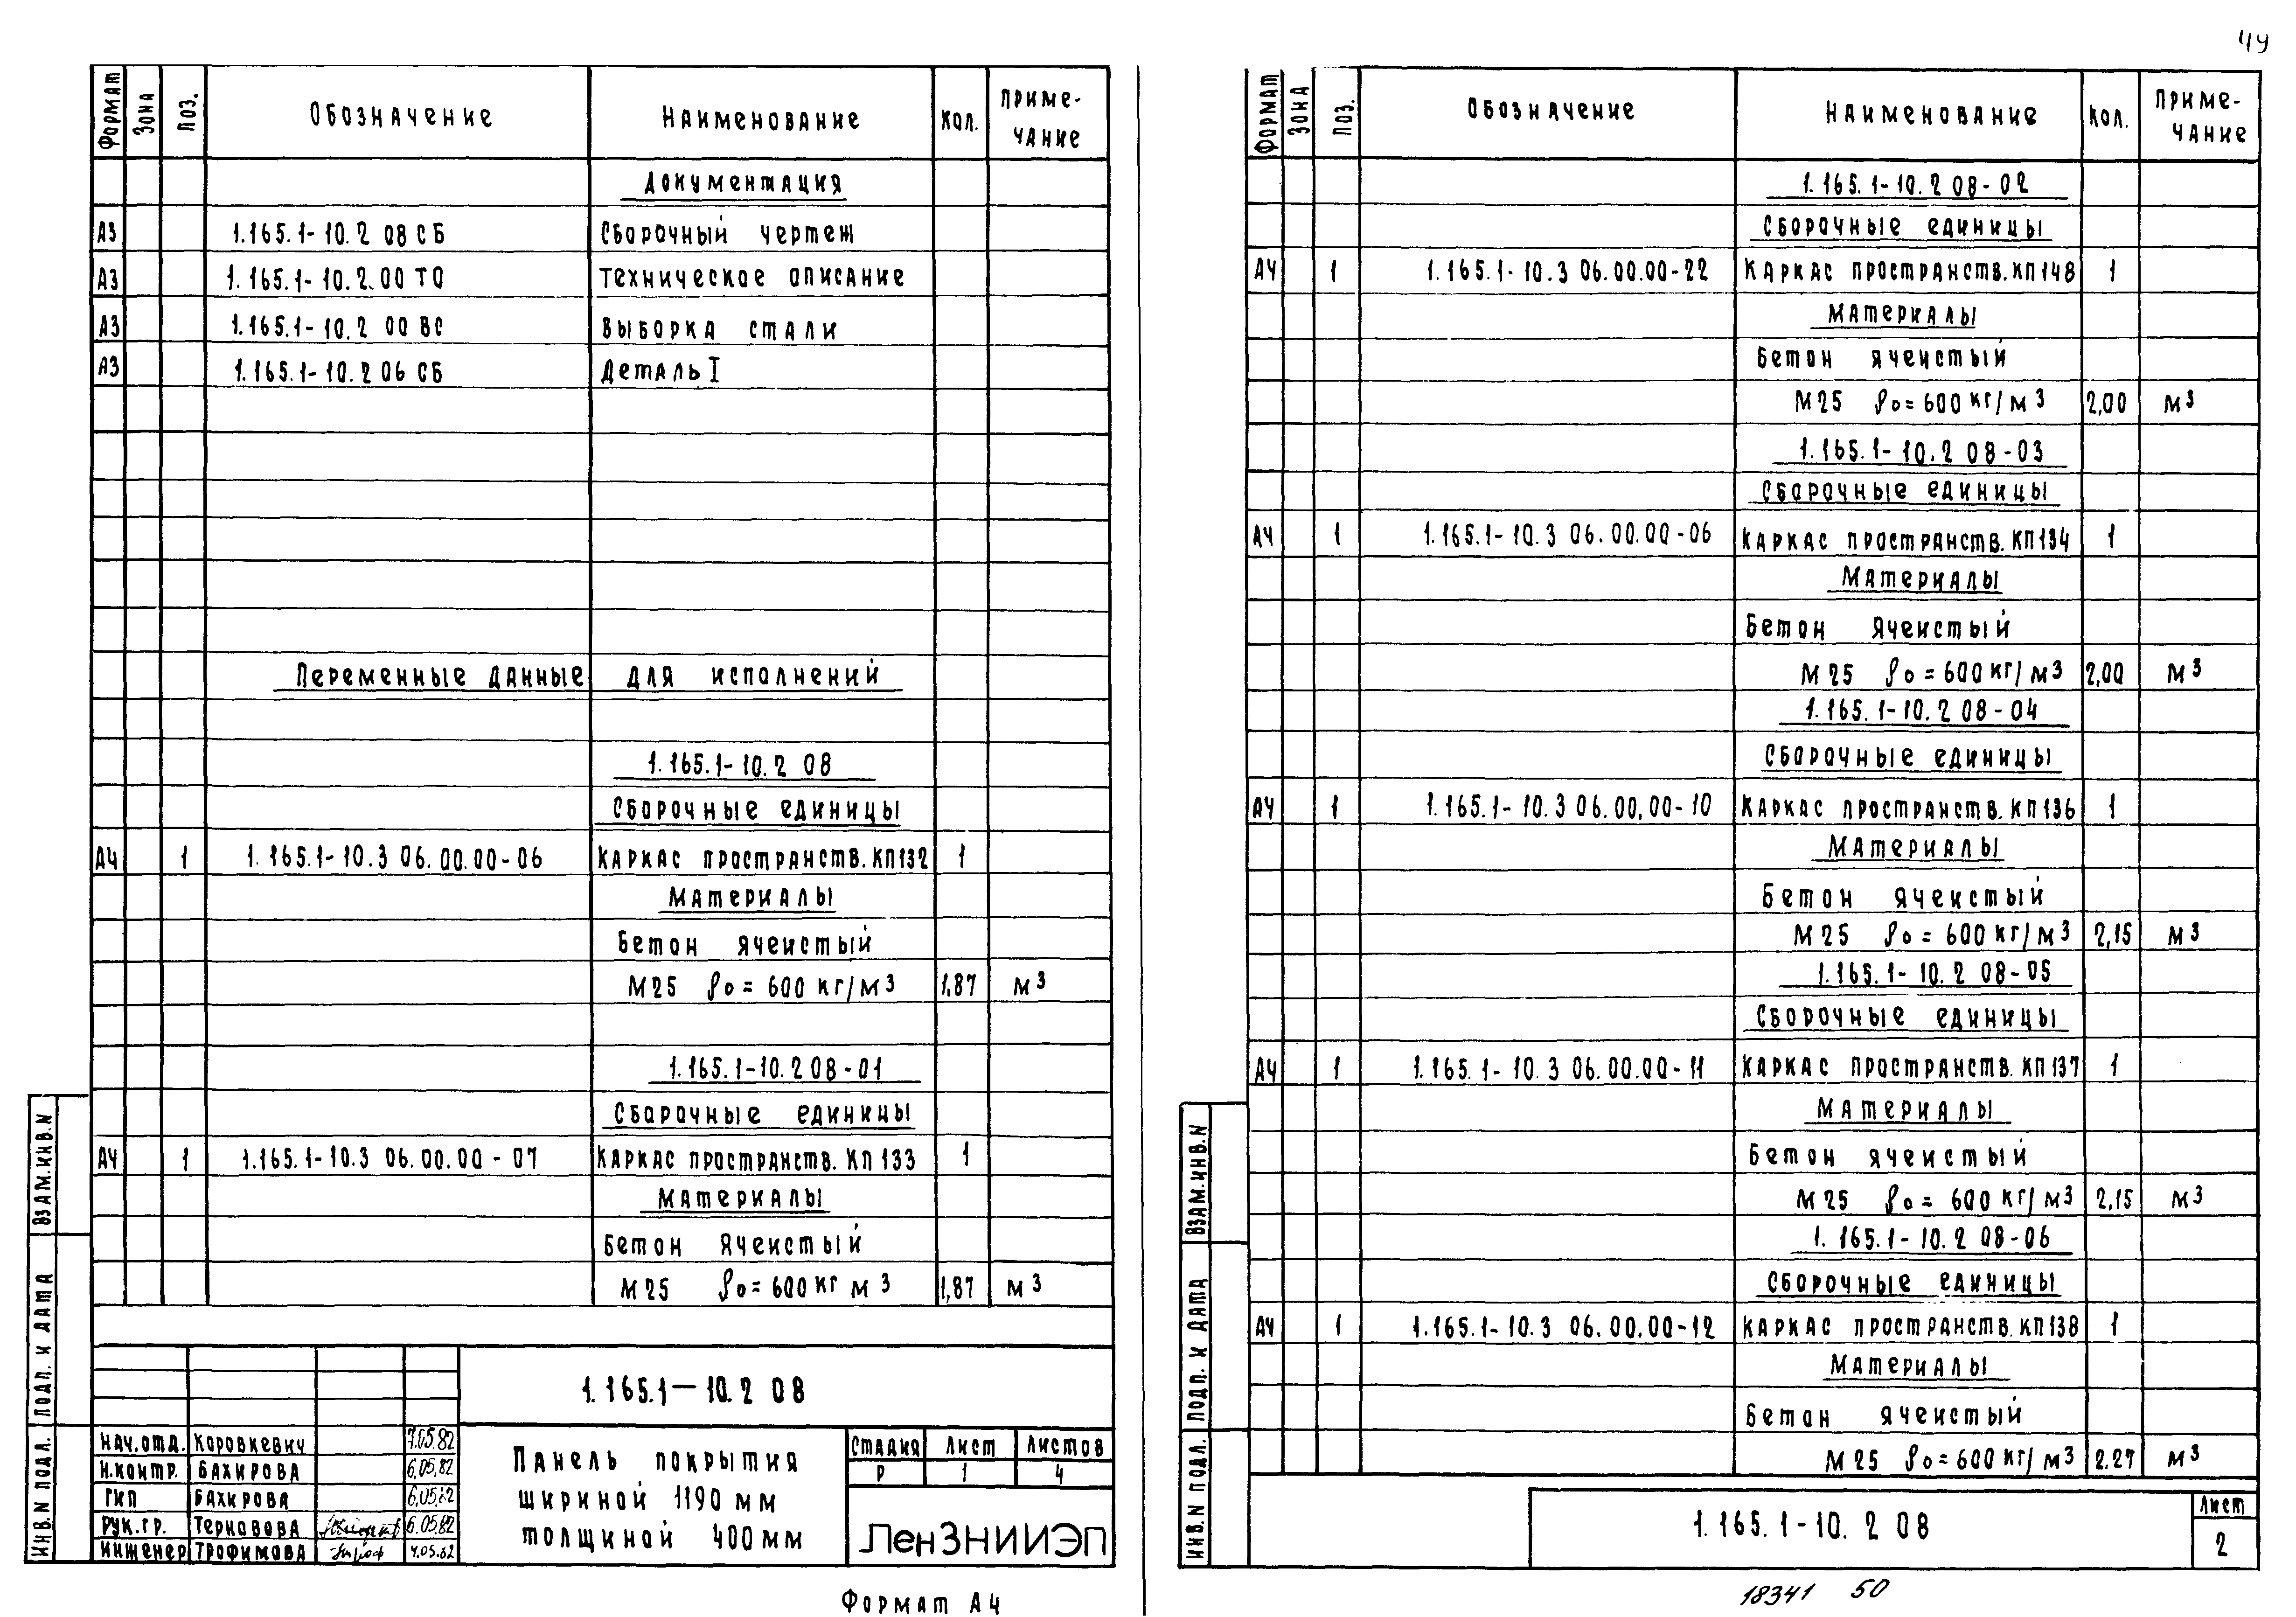 49
Формат Зона Поз. Обозначение Наименование Кол. Примечание
Документация
А3 1.165.1-10.2 08 СБ Сборочный чертеж
А3 1.165.1-10.2.00 ТО Техническое описание
А3 1.165.1-10.2 00 ВС Выборка стали
А3 1.165.1-10.2 06 СБ Деталь I
Переменные данные для исполнений
1.165.1-10.2 08
Сборочные единицы
А4 1 1.165.1-10.3 06.00.00-06 Каркас пространств. КП132 1
Материалы
Бетон ячеистый
М25 ρо = 600 кг/м3 1,87 м3
1.165.1-10.2 08-01
Сборочные единицы
А4 1 1.165.1-10.3 06.00.00-07 Каркас пространств. КП133 1
Материалы
Бетон ячеистый
М25 ρо = 600 кг м3 1,87 м3
1.165.1-10.2 08
Нач.отд. Коровкевич 7.05.82
Н.контр. Бахирова 6.05.82
ГИП Бахирова 6.05.82
Рук.гр. Терновова 6.05.82
Инженер Трофимова 4.05.82
Панель покрытия
шириной 1190 мм
толщиной 400 мм
Стадия Лист Листов
Р 1 4
ЛенЗНИИЭП
Взам.инв.N
Подп. и дата
Инв.N подл.
Формат А4
Формат Зона Поз. Обозначение Наименование Кол. Примечание
1.165.1-10.2 08-02
Сборочные единицы
А4 1 1.165.1-10.3 06.00.00-22 Каркас пространств. КП148 1
Материалы
Бетон ячеистый
М25 ρо = 600 кг/м3 2,00 м3
1.165.1-10.2 08-03
Сборочные единицы
А4 1 1.165.1-10.3 06.00.00-06 Каркас пространств. КП134 1
Материалы
Бетон ячеистый
М25 ρо = 600 кг/м3 2,00 м3
1.165.1-10.2 08-04
Сборочные единицы
А4 1 1.165.1-10.3 06.00,00-10 Каркас пространств. КП136 1
Материалы
Бетон ячеистый
М25 ρо = 600 кг/м3 2,15 м3
1.165.1-10.2 08-05
Сборочные единицы
А4 1 1.165.1-10.3 06.00.00-11 Каркас пространств. КП137 1
Материалы
Бетон ячеистый
М25 ρо = 600 кг/м3 2,15 м3
1.165.1-10.2 08-06
Сборочные единицы
А4 1 1.165.1-10.3 06.00.00-12 Каркас пространств. КП138 1
Материалы
Бетон ячеистый
М25 ρо = 600 кг/м3 2.27 м3
1.165.1-10.2 08
Лист
2
Взам.инв.N
Подп. и дата
Инв.N подл.
18341 50